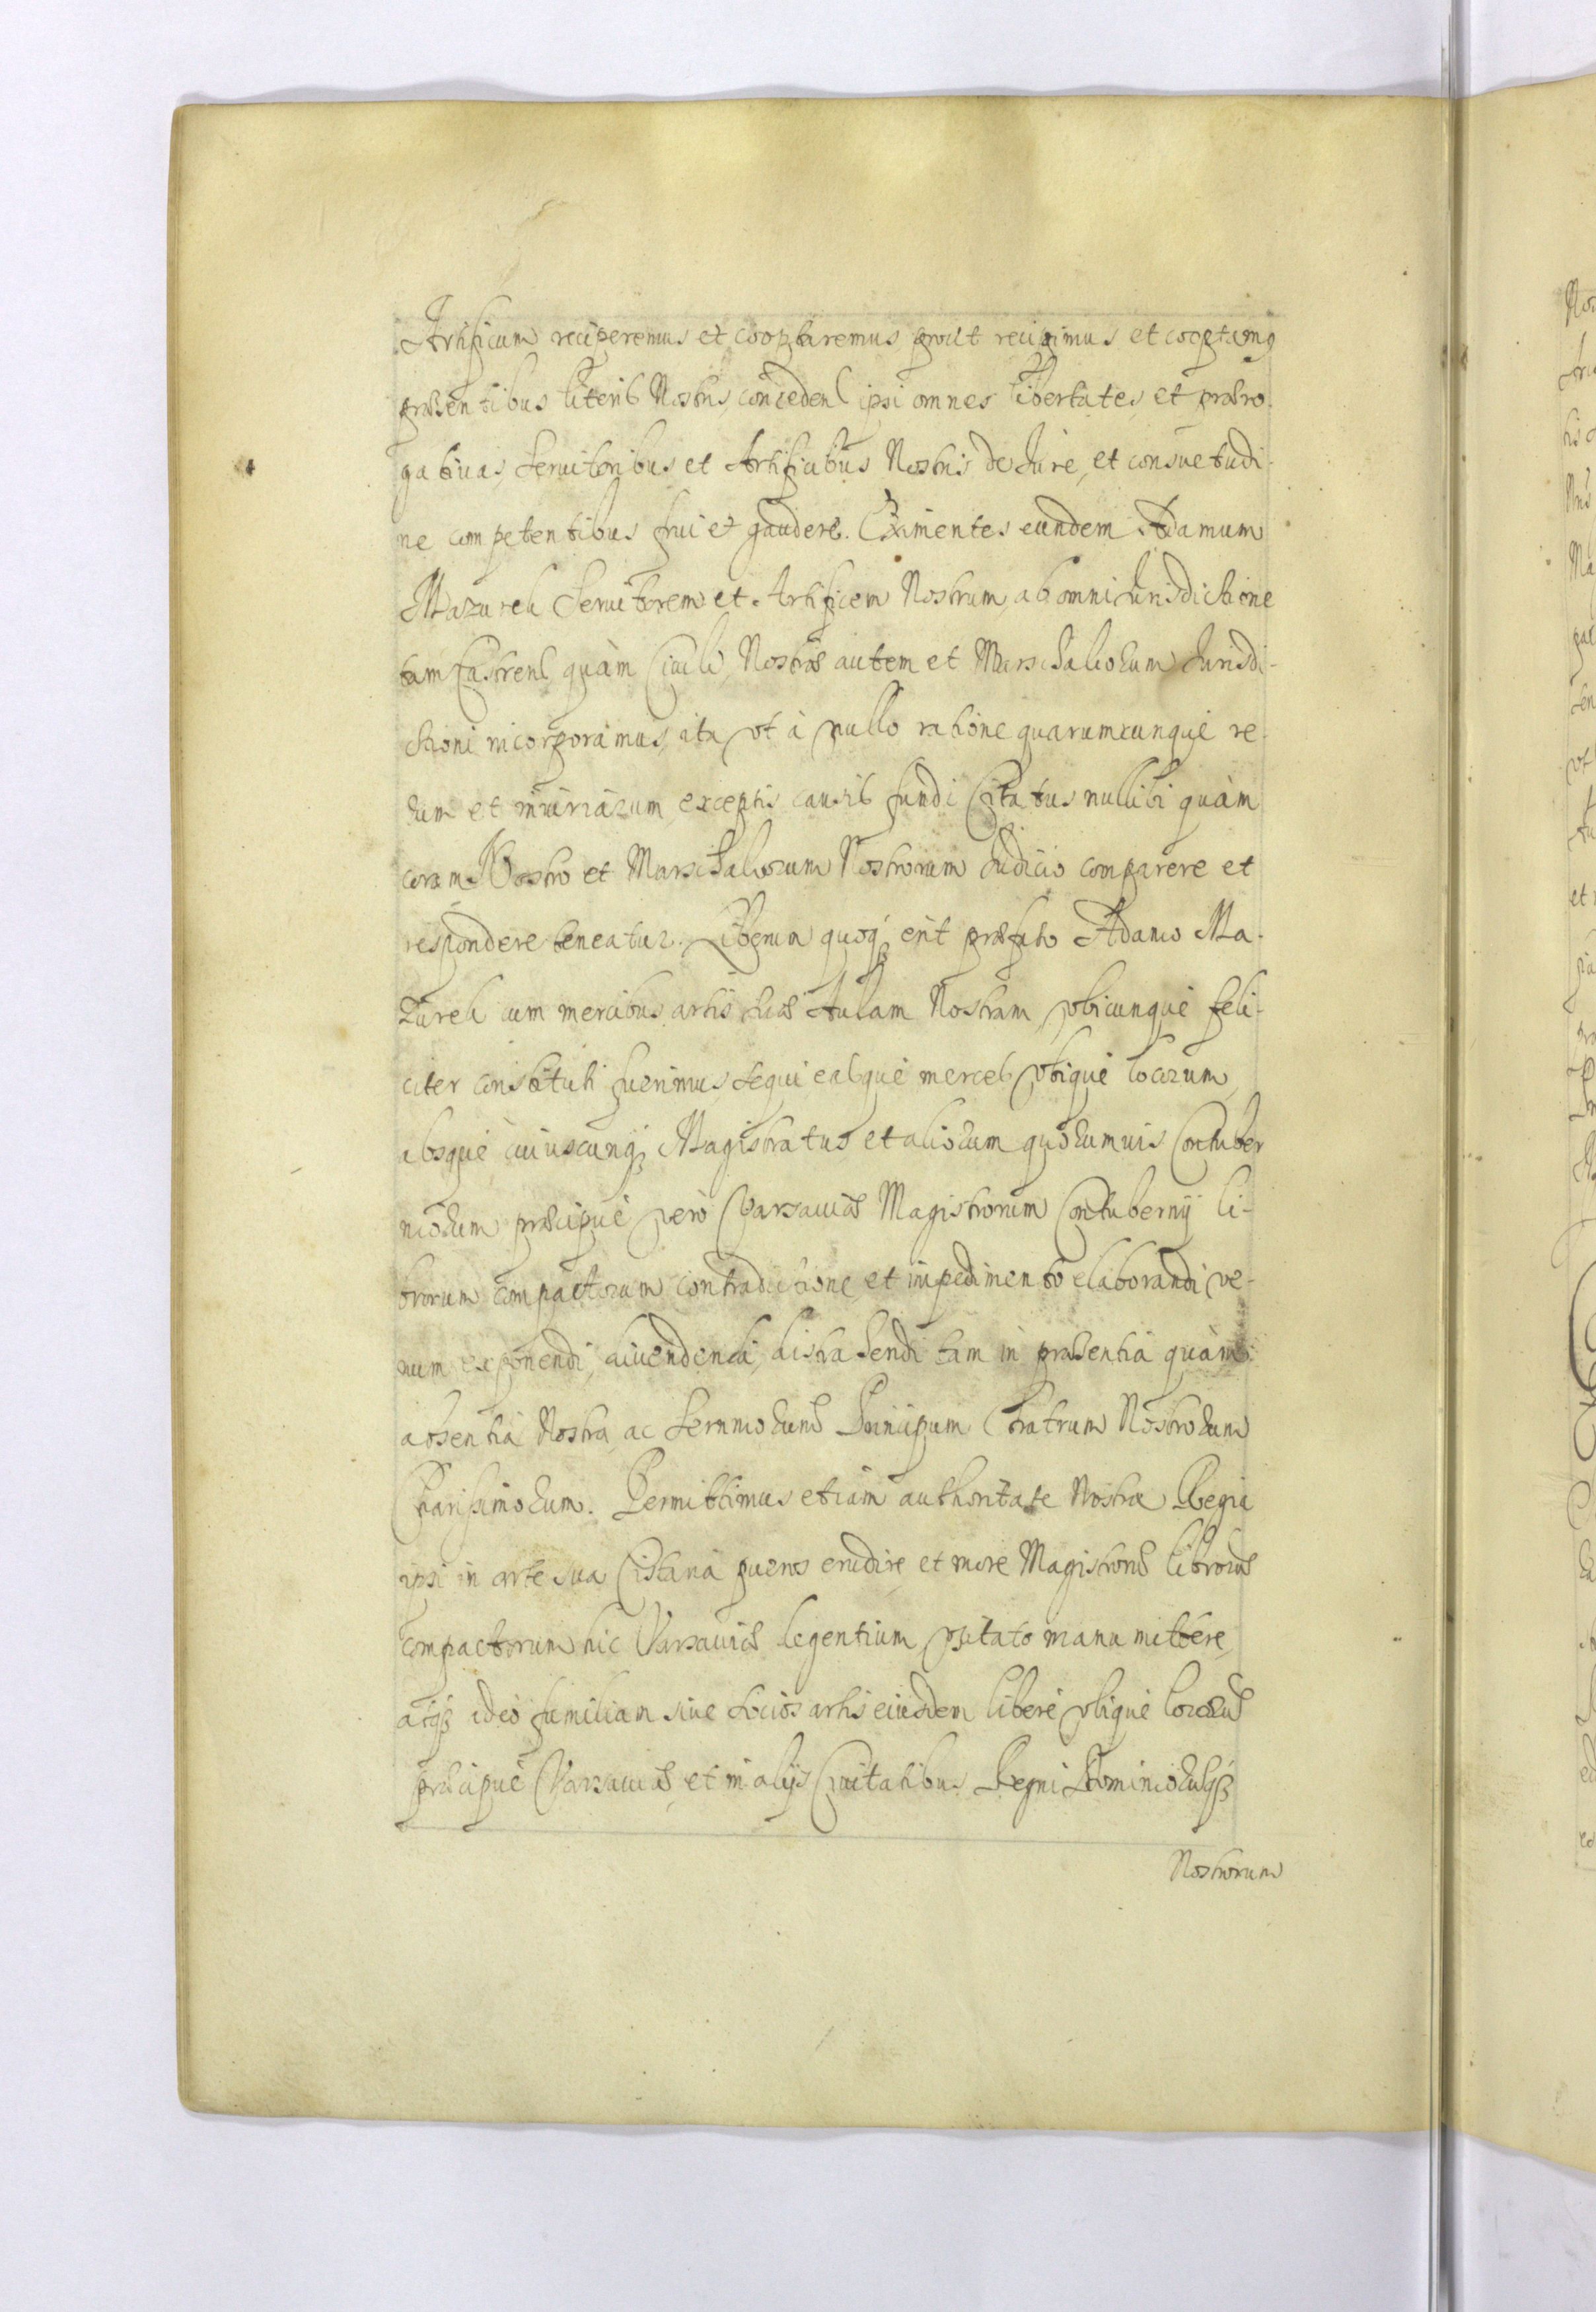 Artificum reciperemus et cooptaremus, prout recipimus et cooptamus
præsentibus literis Nostris, conceden͠ ipsi omnes libertates et præro-
gatiuas, Seruitoribus et Artificibus Nostris de Iure, et consuetudi-
ne competentibus frui et gaudere. Eximentes eundem Adamum
Mazurek Seruitorem et Artificem Nostrum, ab omni Iurisdictione
tam Castren͠ quàm Ciuili, Nostræ autem et Marschalcorum Iurisdi-
ctioni incorporamus, ita vt à nullo ratione quarumcunque re-
rum et iniuriarum, exceptis causis fundi Citatus nullibi quàm
coram Nostro et Marschalcorum Nostrorum Iudicio comparere et
respondere teneatur. Liberum quoq; erit præfato Adamo Ma-
zurek cum mercibus artis suæ Aulam Nostram, vbicunque feli-
citer constituti fuerimus, sequi easque merces vbique locorum,
absque cuiuscunq; Magistratus et aliorum quorumuis Contuber
niorum præcipuè verò Varsauiæ Magistrorum Contubernij li-
brorum compactorum contradictione, et impedimento elaborandi, ve-
num exponendi, diuendendi, distrahendi tam in præsentia quàm
absentia Nostra, ac Sernmorum Principum Fratrum Nostrorum
Charissimorum. Permittimus etiam authoritate Nostra Regia
ipsi in arte sua Cistaria pueros erudire, et more Magistroru͠ libroru͠
compactorum hic Varsauiæ degentium, vsitato manu mittere,
atq; adeò familiam siue socios artis eiusdem liberè vbique locoru͠
præcipuè Varsauiæ, et in alijs Ciuitatibus Regni Dominiorumq;
Nostrorum